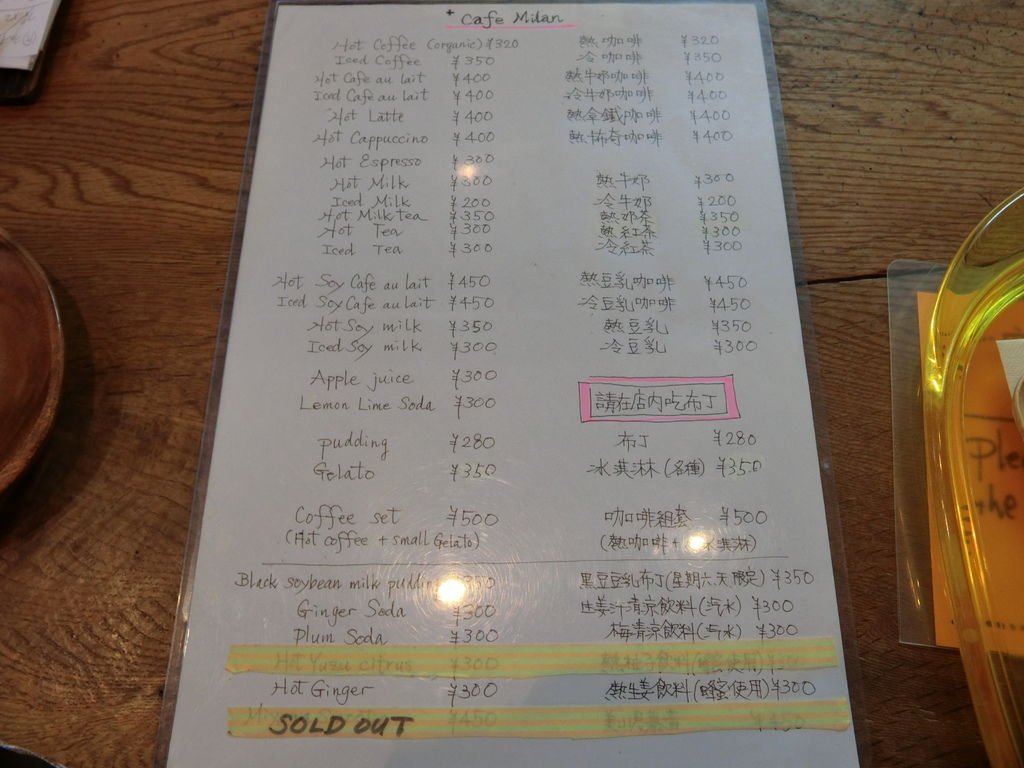 Cafe Milan
Hot Coffee (organic) ¥320 熱咖啡 ¥320
Iced Coffee ¥350 冷咖啡 ¥350
Hot Cafe au lait ¥400 熱牛奶咖啡 ¥400
Iced Cafe au lait ¥400 冷牛奶咖啡 ¥400
Hot Latte ¥400 熱拿鐵咖啡 ¥400
Hot Cappuccino ¥400 熱布奇咖啡 ¥400
Hot Espresso ¥300
Hot Milk ¥300 熱牛奶 ¥300
Iced Milk ¥200 冷牛奶 ¥200
Hot Milk tea ¥350 熱奶茶 ¥350
Hot Tea ¥300 熱紅茶 ¥300
Iced Tea ¥300 冷紅茶 ¥300
Hot Soy Cafe au lait ¥450 熱豆乳咖啡 ¥450
Iced Soy Cafe au lait ¥450 冷豆乳咖啡 ¥450
Hot Soy milk ¥350 熱豆乳 ¥350
Iced Soy milk ¥300 冷豆乳 ¥300
Apple juice ¥300
Lemon Lime Soda ¥300 請在店内吃布丁
pudding ¥280 布丁 ¥280
Gelato ¥350 冰淇淋(各種) ¥350
Coffee set ¥500 咖啡組套 ¥500
(Hot coffee + small Gelato) (熱咖啡+ 冰淇淋)
Black soybean milk pudding ¥350 黑豆豆乳布丁(星期六.天限定) ¥350
Ginger Soda ¥300 生姜汁清凉飲料(汽水) ¥300
Plum Soda ¥300 梅清凉飲料(汽水) ¥300
Hot Yuzu citrus ¥300 熱柚子飲料(蜂蜜使用)
Hot Ginger ¥300 熱生姜飲料(蜂蜜使用) ¥300
SOLD OUT ¥450 ¥450
Plea
the